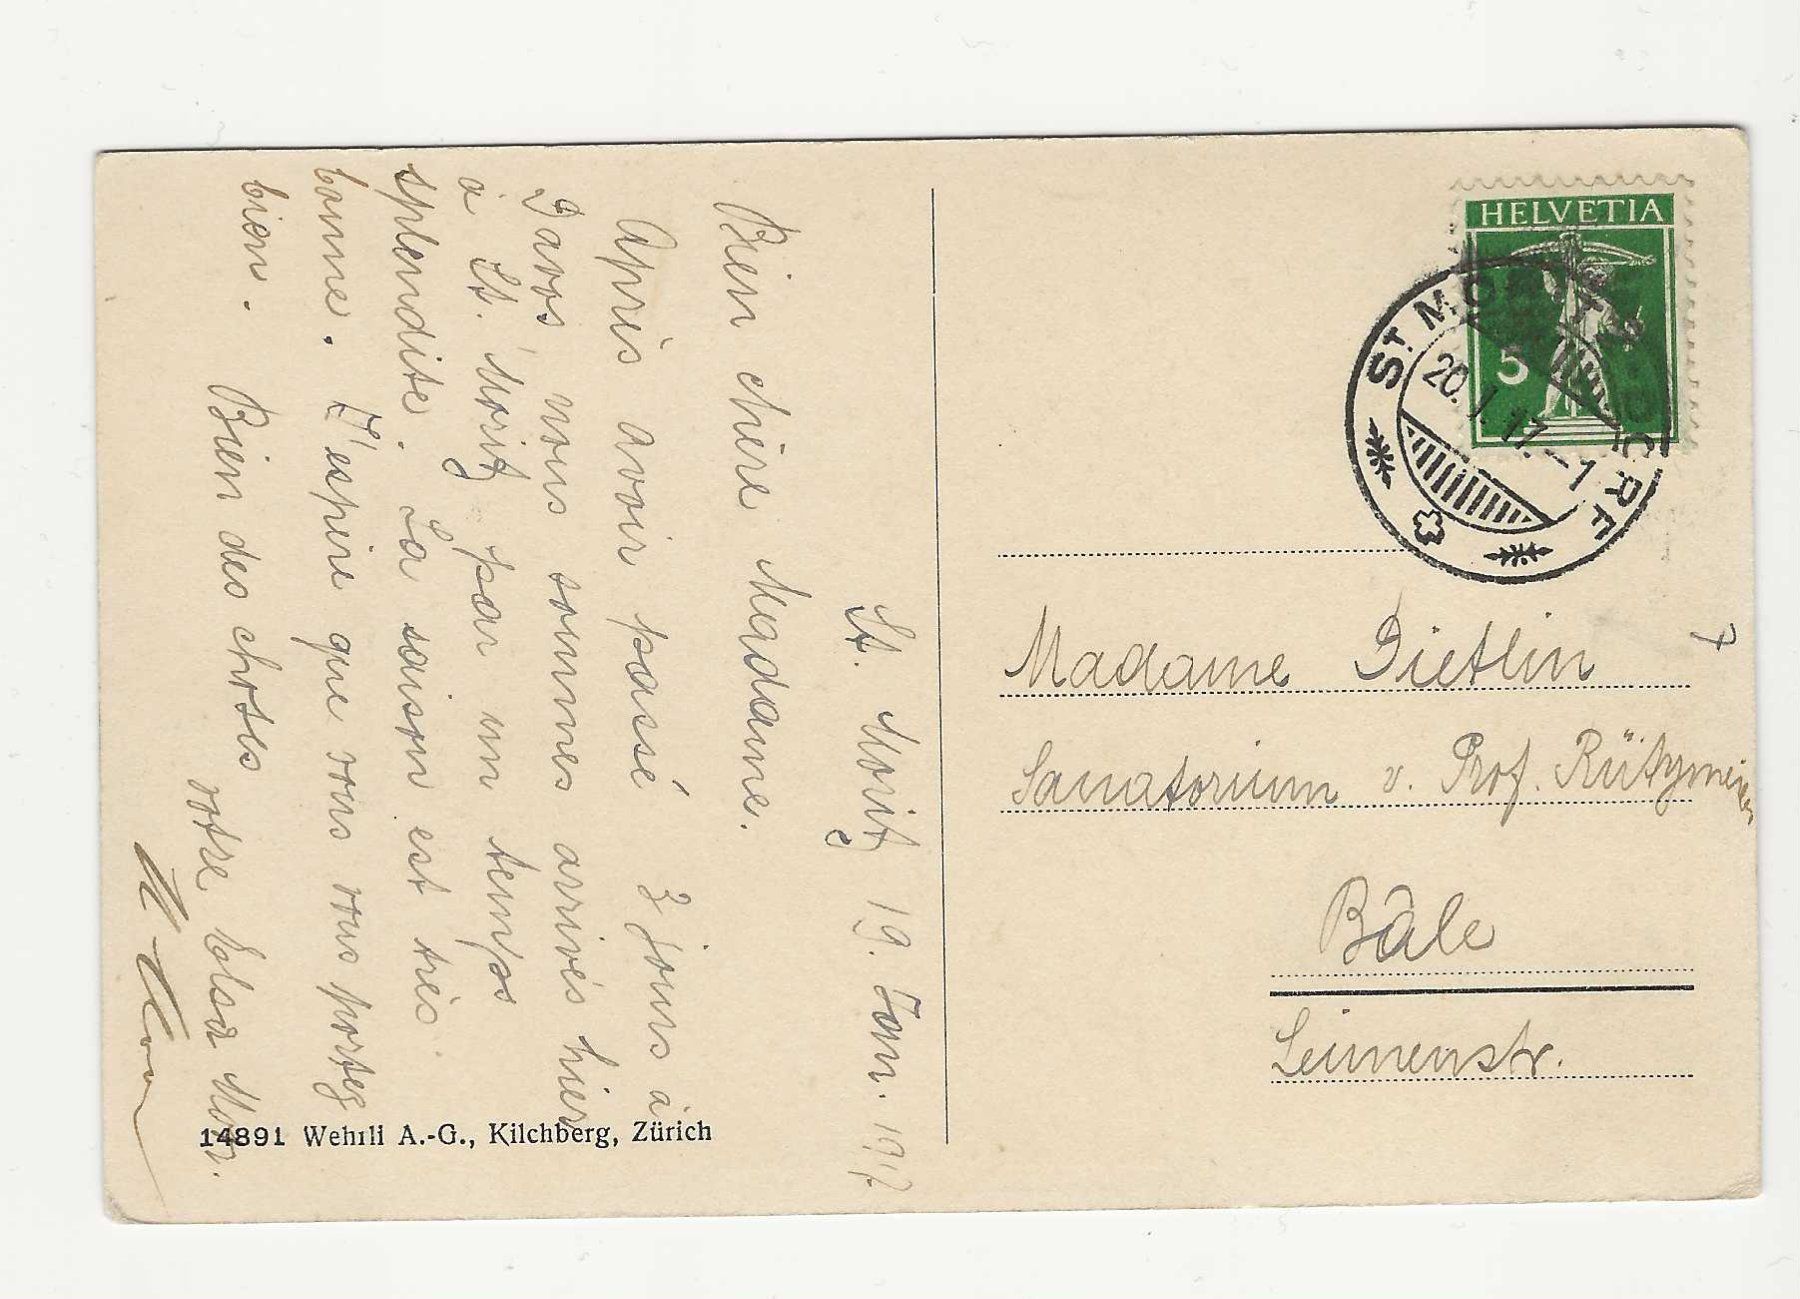 St. Moritz 19. Jan. 1917
Bien chère Madame.
Après avoir passé 3 jours à
Davos nous sommes arrivés hier
à St. Moritz par un temps
splendite. La saison est très
bonne. J'espère que vous vous portez
bien. Bien des choses
votre Elsa Mor.
HELVETIA
5
ST MORITZ-DORF
20. I. 17.–1
7
Madame Dietlin
Sanatorium v. Prof. Rütymeier
Bâle
Leimenstr.
14891 Wehrli A.-G., Kilchberg, Zürich